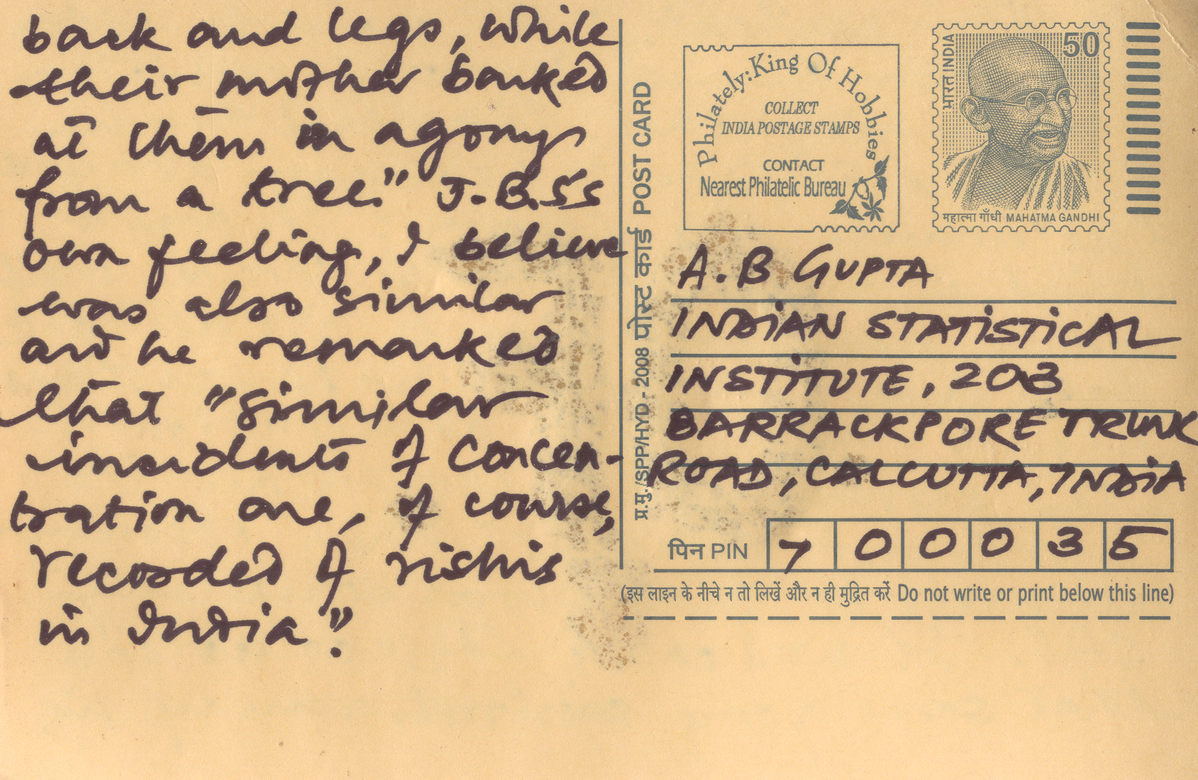 back and legs, while
their mother barked
at them in agony
from a tree." J.B.S's
own feeling, I believe
was also similar
and he remarked
that "similar
incidents of concen-
tration are, of course,
recorded of rishis
in India".
Philately:King Of Hobbies
COLLECT
INDIA POSTAGE STAMPS
CONTACT
Nearest Philatelic Bureau
भारत INDIA
50
महात्मा गाँधी MAHATMA GANDHI
प्र.मु./SPP/HYD - 2008 पोस्ट कार्ड POST CARD
A.B GUPTA
INDIAN STATISTICAL
INSTITUTE, 203
BARRACKPORE TRUNK
ROAD, CALCUTTA, INDIA
पिन PIN 700035
(इस लाइन के नीचे न तो लिखें और न ही मुद्रित करें Do not write or print below this line)